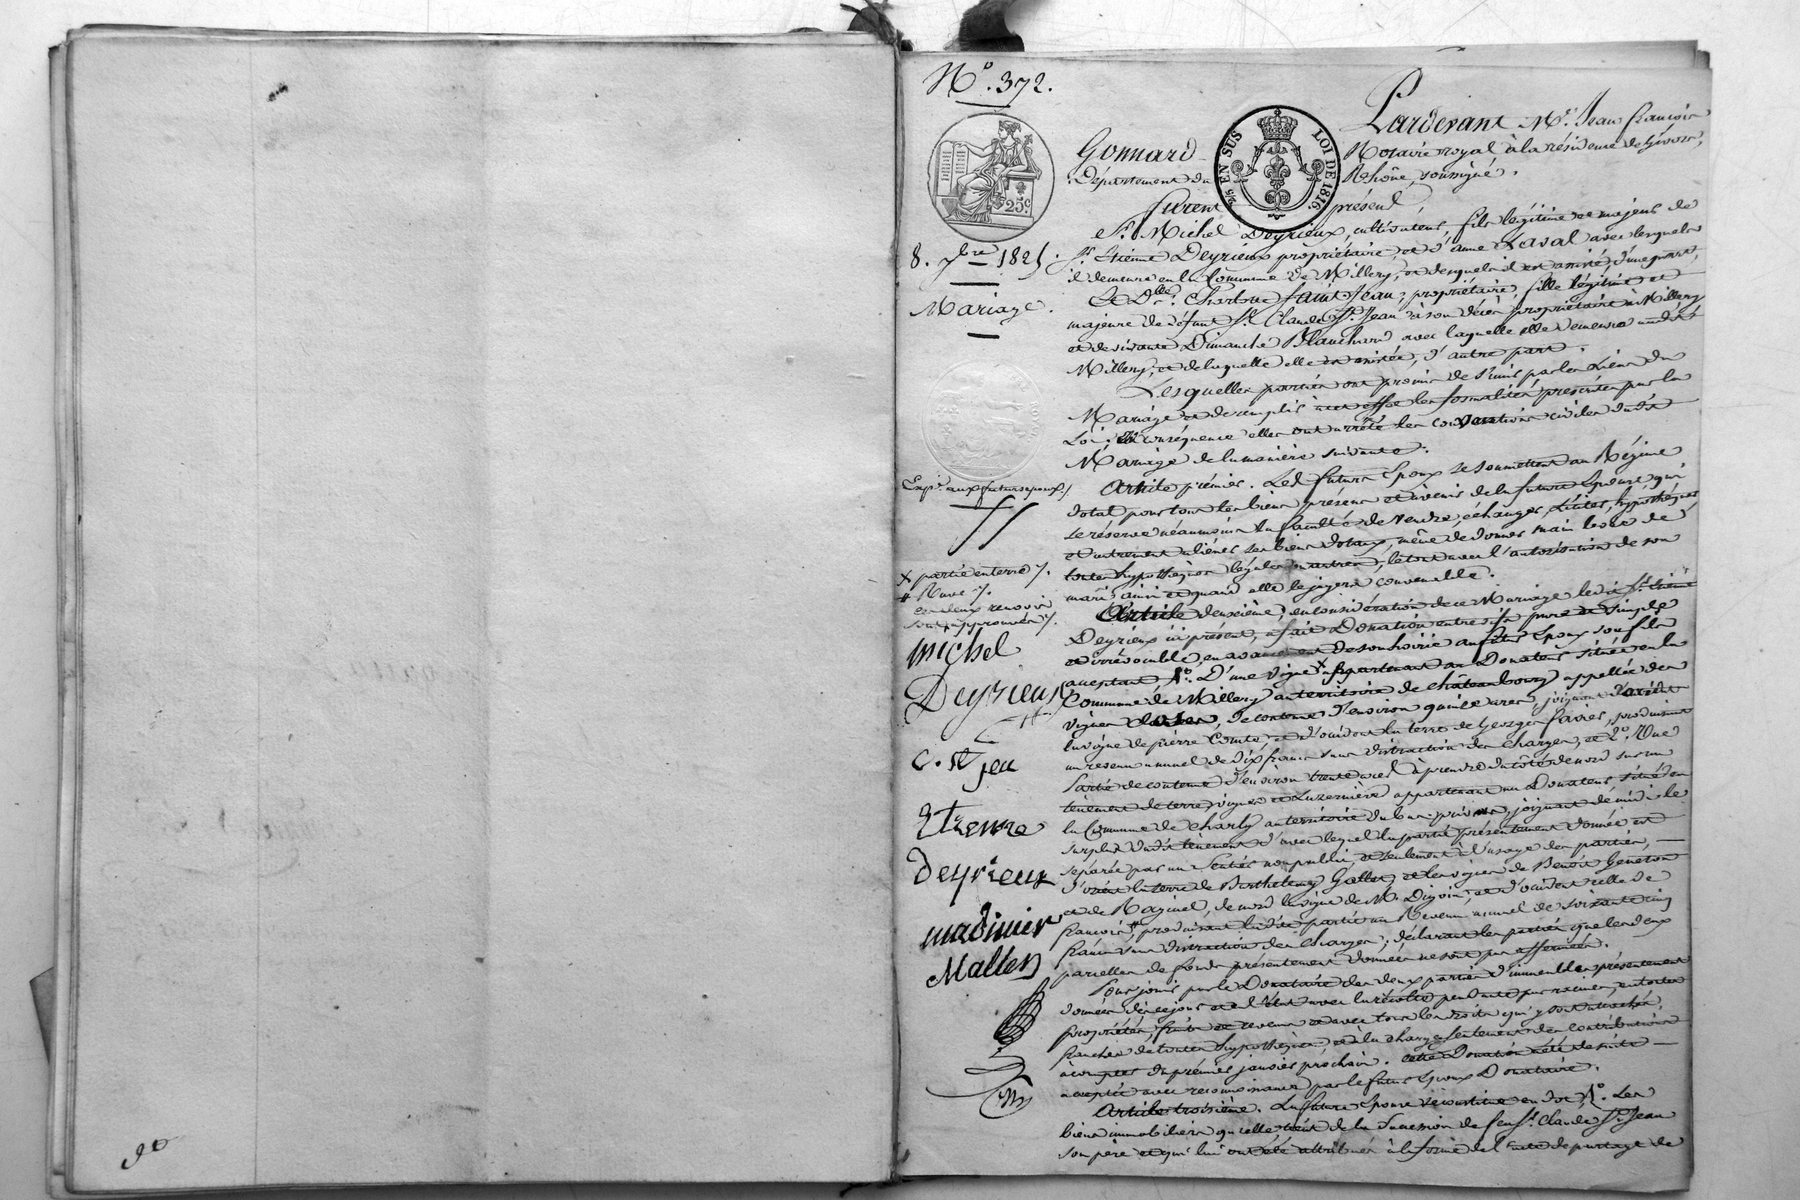 N.° 372.
25.c
8. 7bre 1825.
Mariage.
Exp. aux futurs époux
x partie en terre
# Rave
ces deux renvois
sont approuvés
michel
Deyrieux
C. st jea
Etienne
Deyrieux
madinier
Mallen
2/10 EN SUS LOI DE 1816.
Pardevant Me. Jean françois
Gonnard Notaire royal à la résidence de Givors,
Département du Rhône, soussigné.
furent présent
Sr. Michel Deyrieux, cultivateur, fils légitime et majeur de
Sr. Etienne Deyrieux propriétaire, et d'anne Laval avec lesquels
il demeure en la Commune de Millery, et desquels il est assisté, d'une part,
Et Dlle. Charlotte Saint-Jean, propriétaire, fille légitime et
majeure de défunt Sr. Claude St. Jean à son décès propriétaire à Millery
et de vivante Dimanche Blanchard avec laquelle elle demeure audit
Millery, et de laquelle elle est assistée, d'autre part.
Lesquelles parties ont promis de s'unir par les Liens du
Mariage et de remplir à cet effet les formalités prescrites par la
Loi; En conséquence elles ont arrêté les conventions civiles dudit
Mariage de la manière suivante.
Article premier. Les futurs Epoux se soumettent au Régime
dotal pour tous les biens présens et avenir de la future Epouse qui
se réserve néanmoins la faculté de Vendre, échanger, Liciter, hypothéquer
et autrement aliéner ses biens dotaux, même de donner main levée de
toutes hypothèques légales ou autres, le tout avec l'autorisation de son
mari ainsi et quand elle le jugera convenable.
Article deuxième, en considération de ce Mariage ledit Sr. Etienne
Deyrieux ici présent, a fait Donation entre vifs pure et simple
et irrévocable, en avancement de son hoirie au futur Epoux son fils
acceptant 1.° D'une Vigne x appartenant au Donateur située en la
Commune de Millery au territoire de châteaubourg appellée des
vignes, de contenue d'environ quinze ares, joignant d'orient
la vigne de pierre Comte, et d'occident la terre de Georges favier, produisant
un revenu annuel de dix francs sans distraction des charges, et 2.° Une
Partie de contenue d'environ trente ares à prendre du côté de nord sur un
tènement de terre, vigne et Luzernière appartenant au Donateur, situé en
la Commune de Charly au territoire du bas-privas, joignant de midi le
surplus dudit tènement d'avec lequel la partie présentement donnée est
séparée par un Sentier non public, et seulement à l'usage des parties,
d'orient la terre de Barthelemy Gallet, et les vignes de Benoit Geneton
et de Raginel, de nord la vigne de M. Digoin, et d'occident celle de
françois # produisant ladite partie un Revenu annuel de soixante cinq
francs sans distraction des charges; déclarant les parties que les deux
parcelles de fonds présentement données ne sont pas affermées.
Pour jouir par le Donataire des deux parties d'immeubles présentement
données dès ce jour et en l'état avec la récolte pendante par racines, en toute
propriété, fruits et revenus et avec tous les droits qui y sont attachés,
franches de toutes hypothèques et à la charge seulement des contributions
à compter du premier janvier prochain. Cette Donation a été de suite
acceptée avec reconnaissance par le futur Epoux Donataire.
Article troisième. La future Epouse se constitue en dot, 1.° Les
biens immobiliers qu'elle tient de la Succession de feu Sr. Claude St. Jean
son père et qui lui ont été attribués à la forme de l'acte de partage de